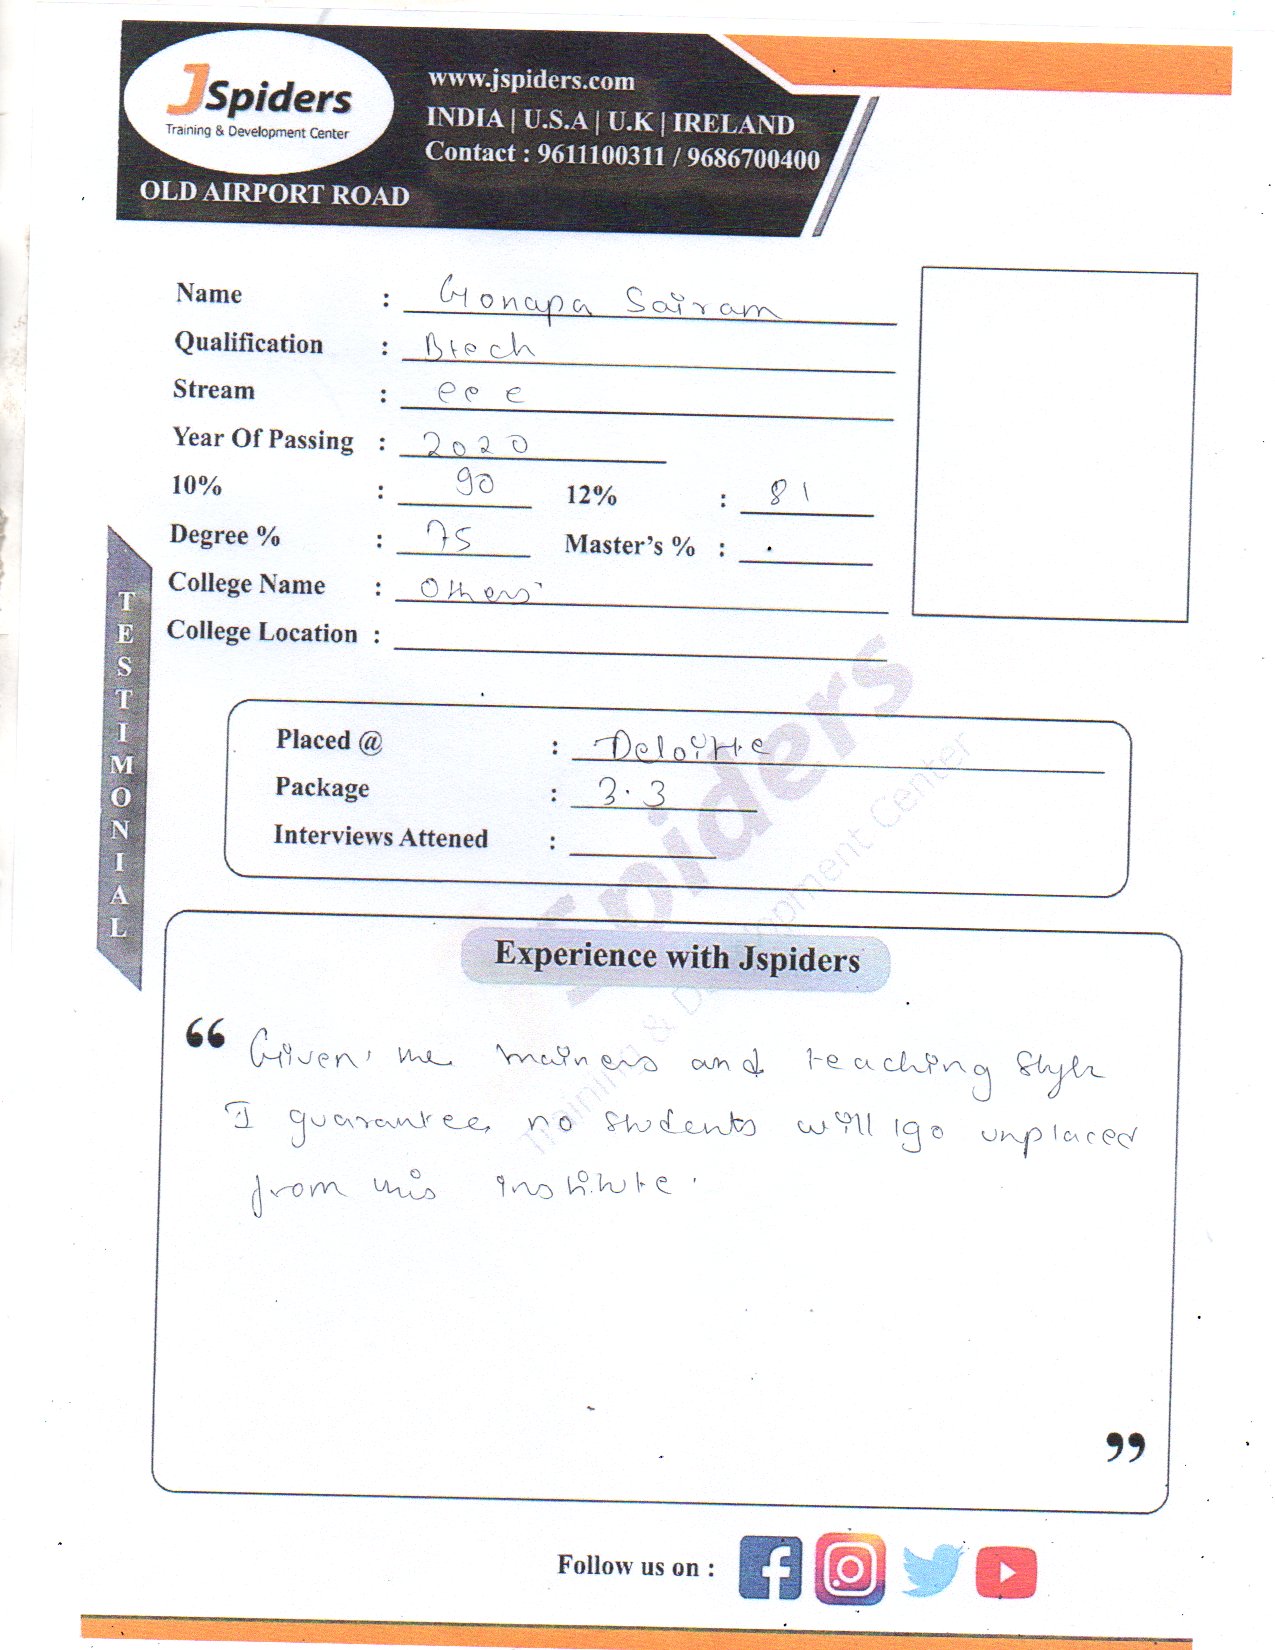 JSpiders
Training & Development Center
OLD AIRPORT ROAD
www.jspiders.com
INDIA | U.S.A | U.K | IRELAND
Contact : 9611100311 / 9686700400
Name : Gonapa Sairam
Qualification : Btech
Stream : eee
Year Of Passing : 2020
10% : 90 12% : 81
Degree % : 75 Master's % : .
College Name : Others
College Location :
TESTIMONIAL
Placed @ : Deloitte
Package : 3.3
Interviews Attened :
Spiders
Training & Development Center
Experience with Jspiders
“ Given the trainers and teaching style
I guarantee no students will go unplaced
from this institute.
”
Follow us on :